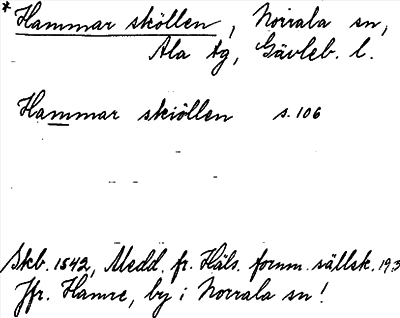 *Hammar sköllen, Norrala sn,
Ala tg, Gävleb. l.
Hammar skiöllen s. 106
Skb. 1542, Medd. fr. Häls. fornm. sällsk. 193
Jfr. Hamre, by i Norrala sn!